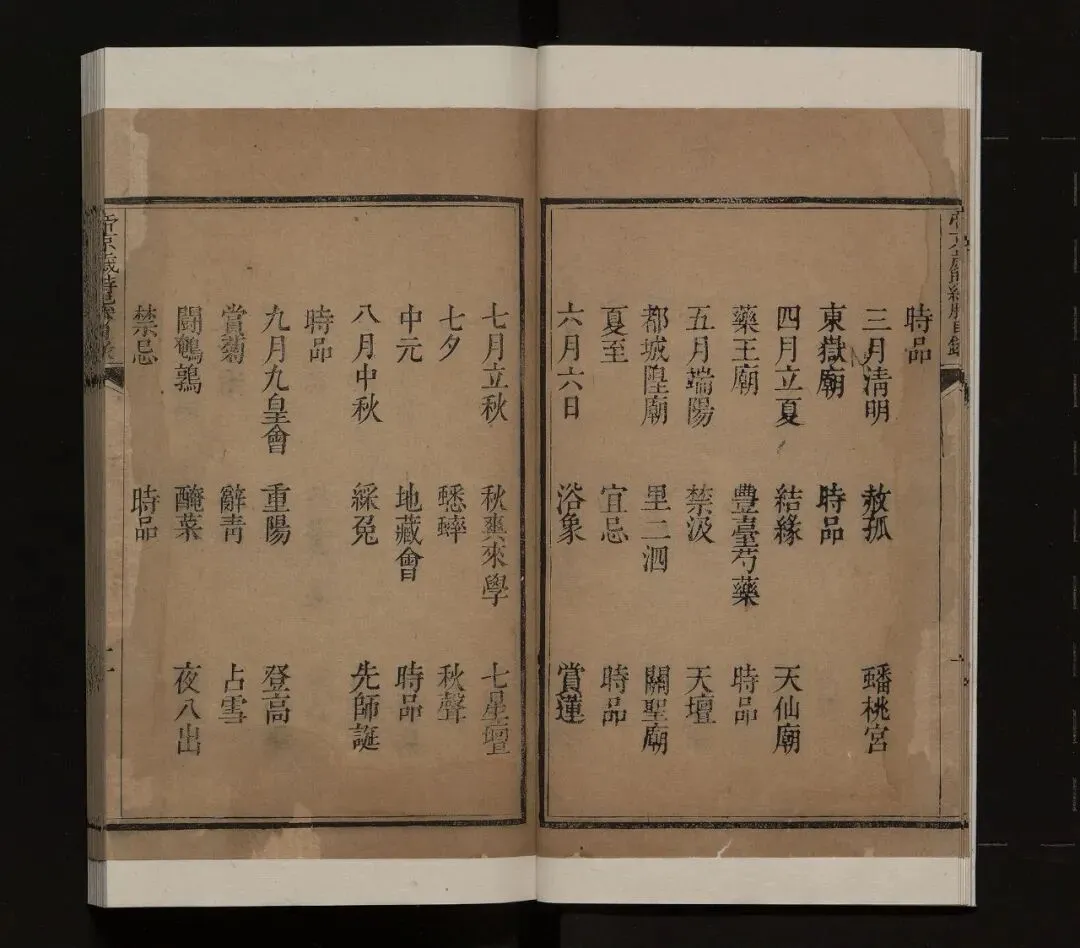 時品
三月清明 赦孤 蟠桃宮
東嶽廟 時品
四月立夏 結緣 天仙廟
藥王廟 豐臺芍藥 時品
五月端陽 禁汲 天壇
都城隍廟 里二泗 關聖廟
夏至 宜忌 時品
六月六日 浴象 賞蓮
七月立秋 秋爽來學 七星壇
七夕 蟋蟀 秋聲
中元 地藏會 時品
八月中秋 綵兔 先師誕
時品
九月九皇會 重陽 登高
賞菊 辭青 占雪
鬪鵪鶉 醃菜 夜八出
禁忌 時品